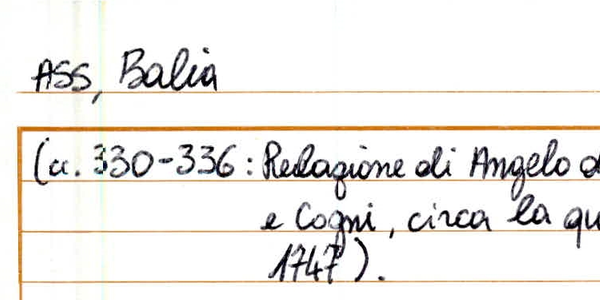 ASS, Balia
(cc. 330-336: Relazione di Angelo d
e Cogni, circa la qu
1747).